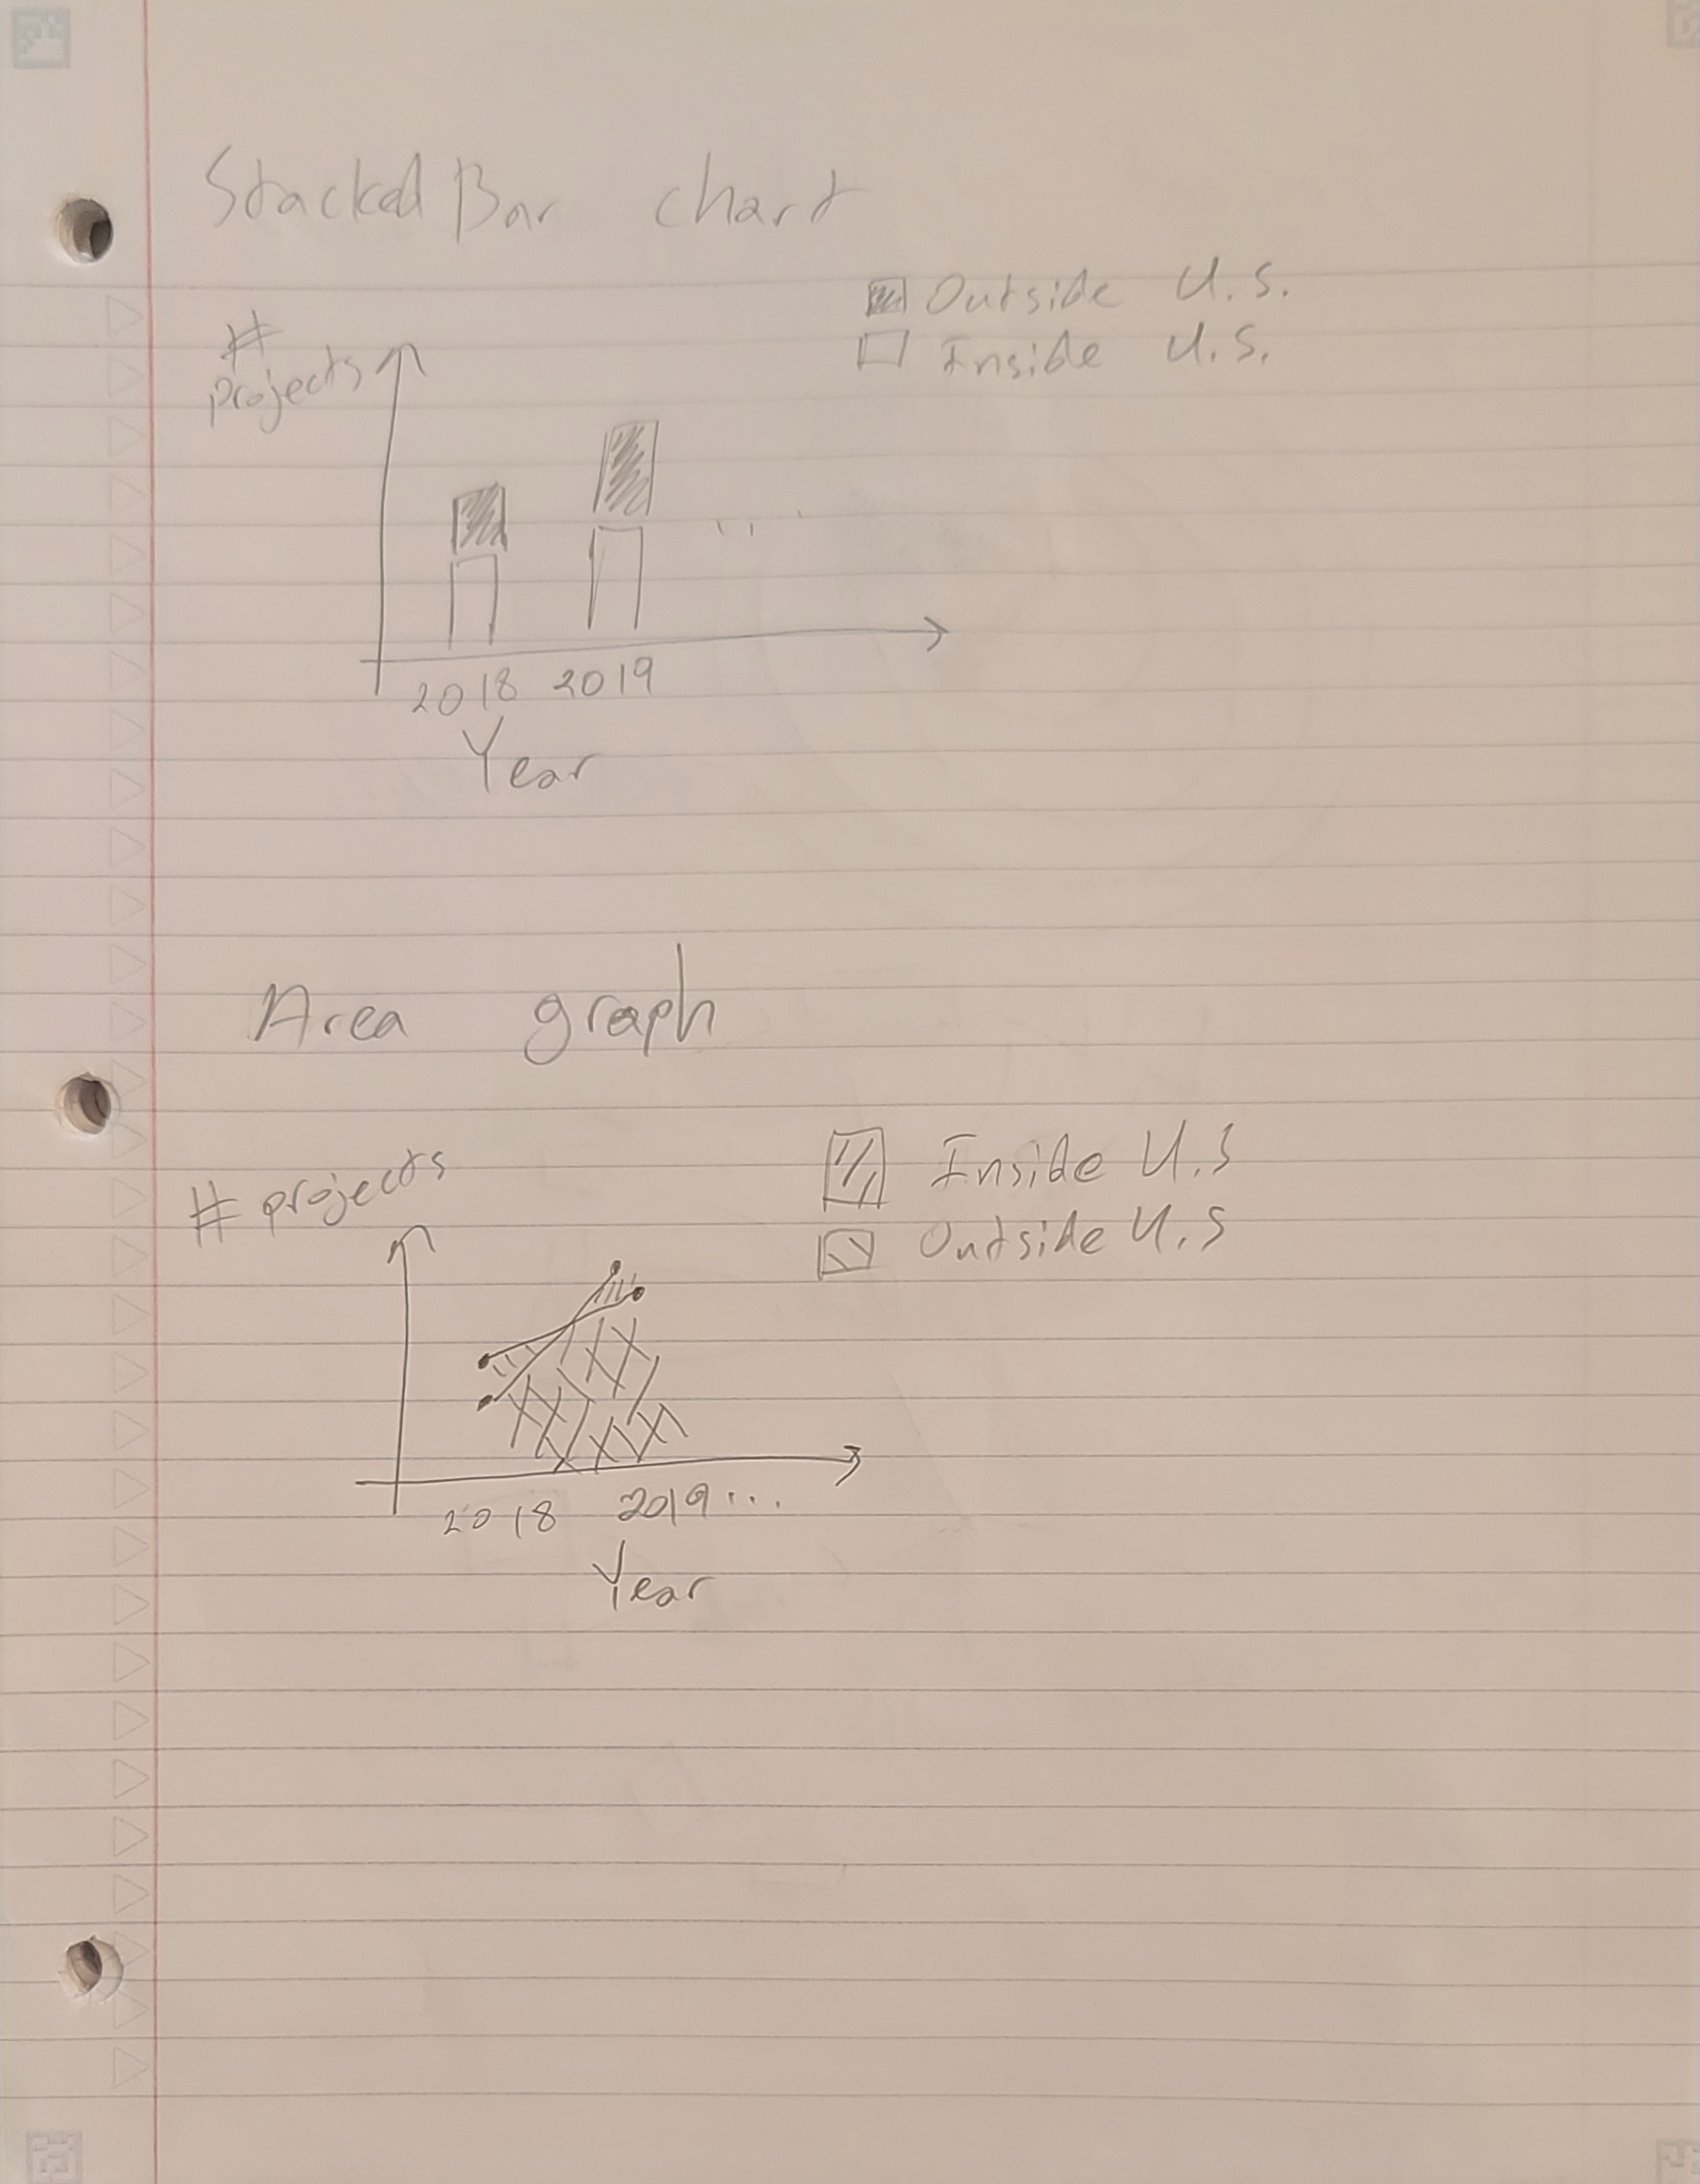 Stacked Bar chart
Outside U.S.
Inside U.S.
#
projects
2018 2019 ...
Year
Area graph
Inside U.S
Outside U.S
# projects
2018 2019 ...
Year